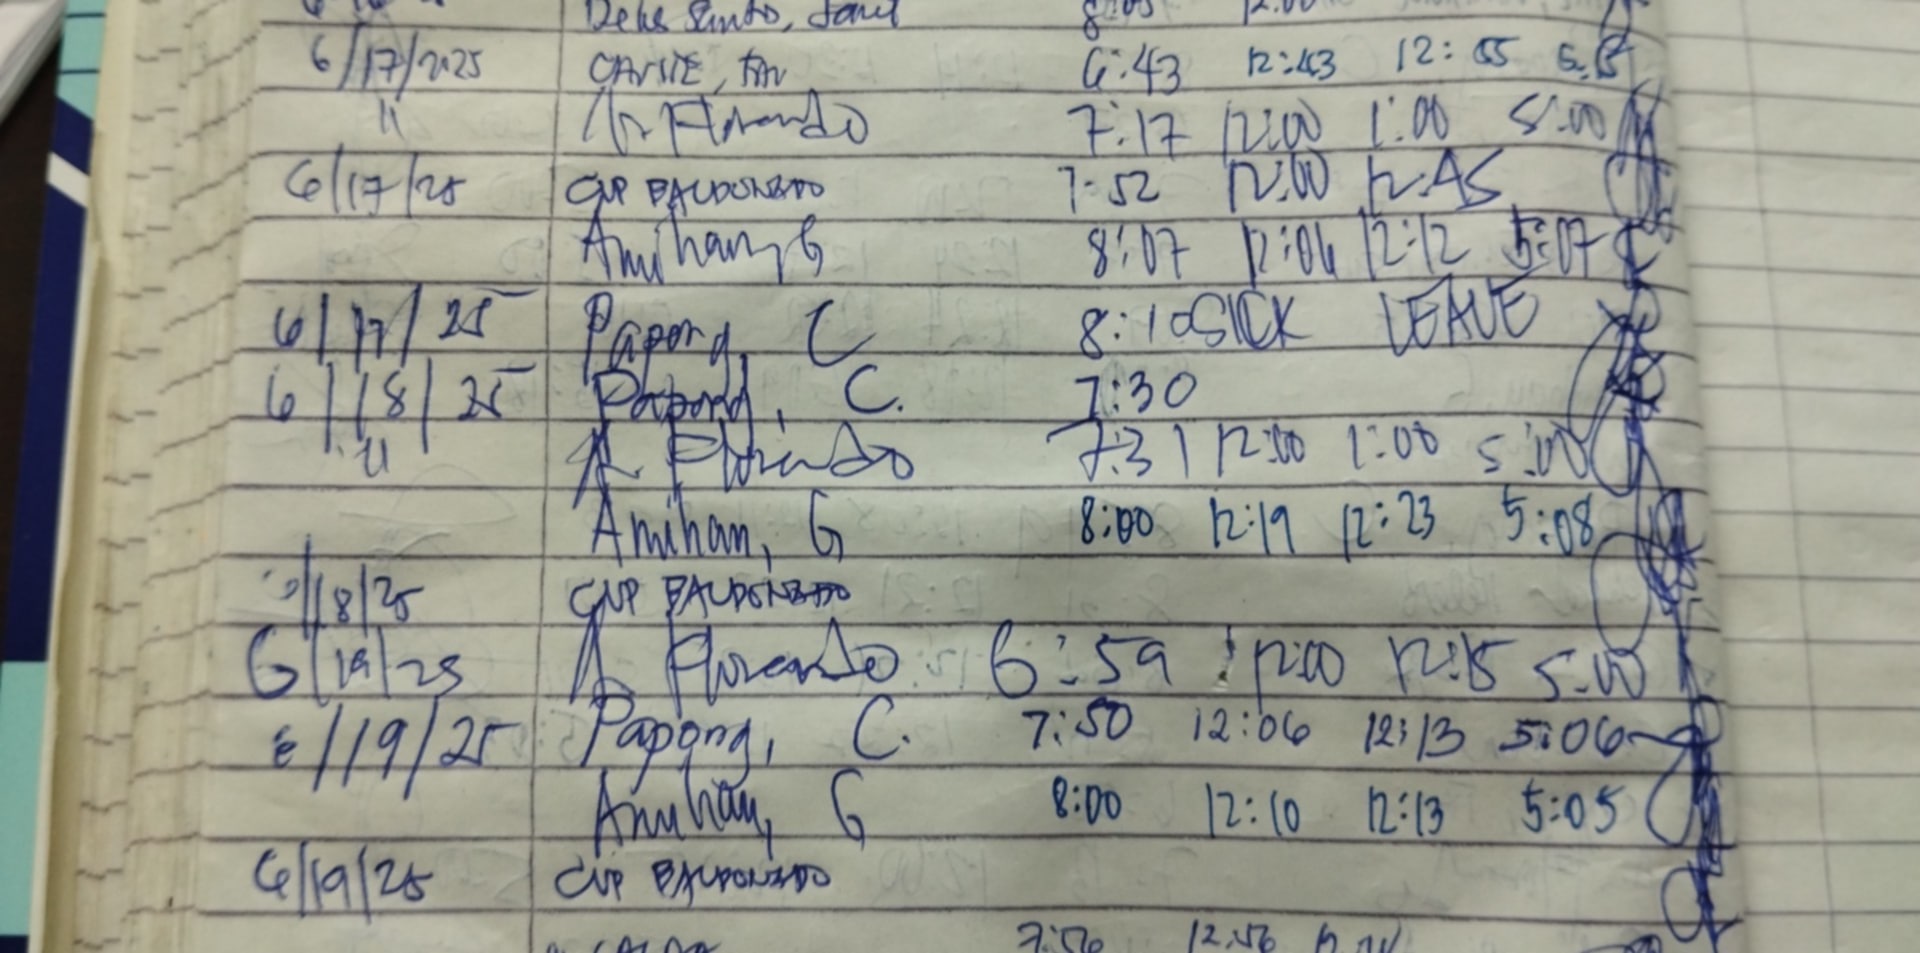 8:05 12:00
6/17/2025 6:43 12:43 12:55
" Florendo 7:17 12:00 1:00 5:00
6/17/25 CNP BALDONADO 7:52 12:00 12:45
Amihan, G 8:07 12:06 12:12 5:07
6/17/25 Papong C 8:10 SICK LEAVE
6/18/25 Papong, C. 7:30
" A Florendo 7:31 12:00 1:00 5:00
Amihan, G 8:00 12:19 12:23 5:08
/18/25 CNP BALDONADO
6/19/25 A Florendo 6:59 12:00 12:15 5:00
6/19/25 Papong, C. 7:50 12:06 12:13 5:06
Amihan, G 8:00 12:10 12:13 5:05
6/19/25 CNP BALDONADO
7:56 12:56